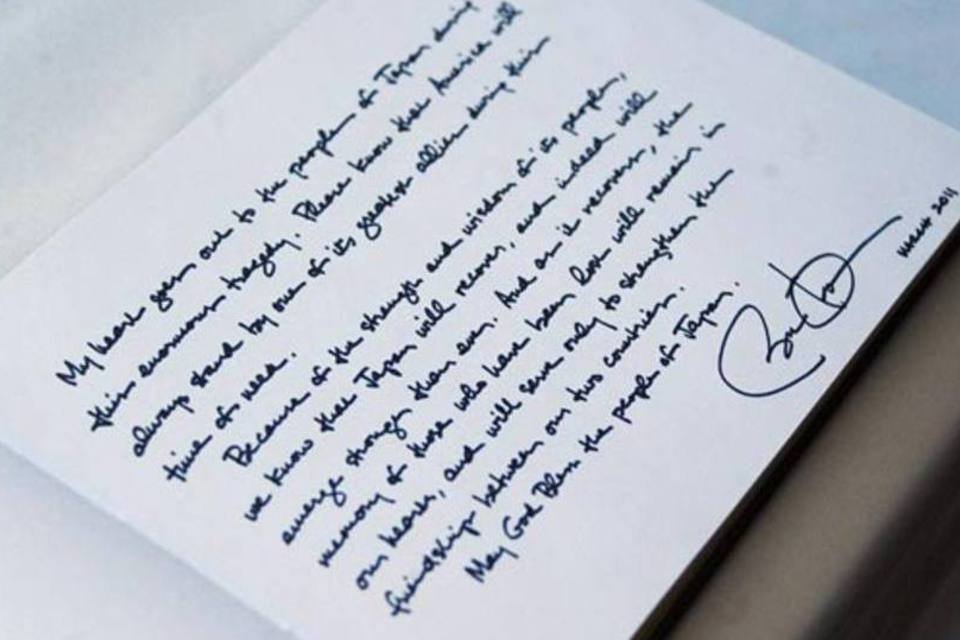 My heart goes out to the people of Japan during
this enormous tragedy. Please know that America will
always stand by one of its greatest allies during their
time of need.
Because of the strength and wisdom of its people,
we know that Japan will recover, and indeed will
emerge stronger than ever. And as it recovers, the
memory of those who have been lost will remain in
our hearts, and will serve only to strengthen the
friendship between our two countries.
May God Bless the people of Japan.
2011